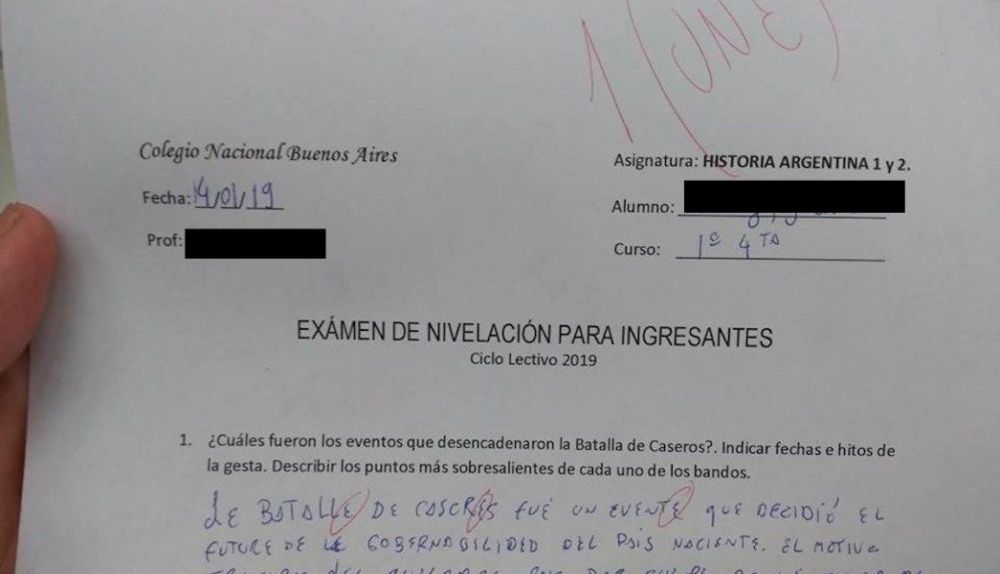 1 (UNE)
Colegio Nacional Buenos Aires
Asignatura: HISTORIA ARGENTINA 1 y 2.
Fecha: 14/01/19
Alumno:
Prof:
Curso: 1º 4TA
EXÁMEN DE NIVELACIÓN PARA INGRESANTES
Ciclo Lectivo 2019
1. ¿Cuáles fueron los eventos que desencadenaron la Batalla de Caseros?. Indicar fechas e hitos de
la gesta. Describir los puntos más sobresalientes de cada uno de los bandos.
LE BATALLE DE CASCRES FUÉ UN EVENTE QUE DECIDIÓ EL
FUTURE DE LE GOBERNABILIDED DEL PAIS NACIENTE. EL MOTIVE